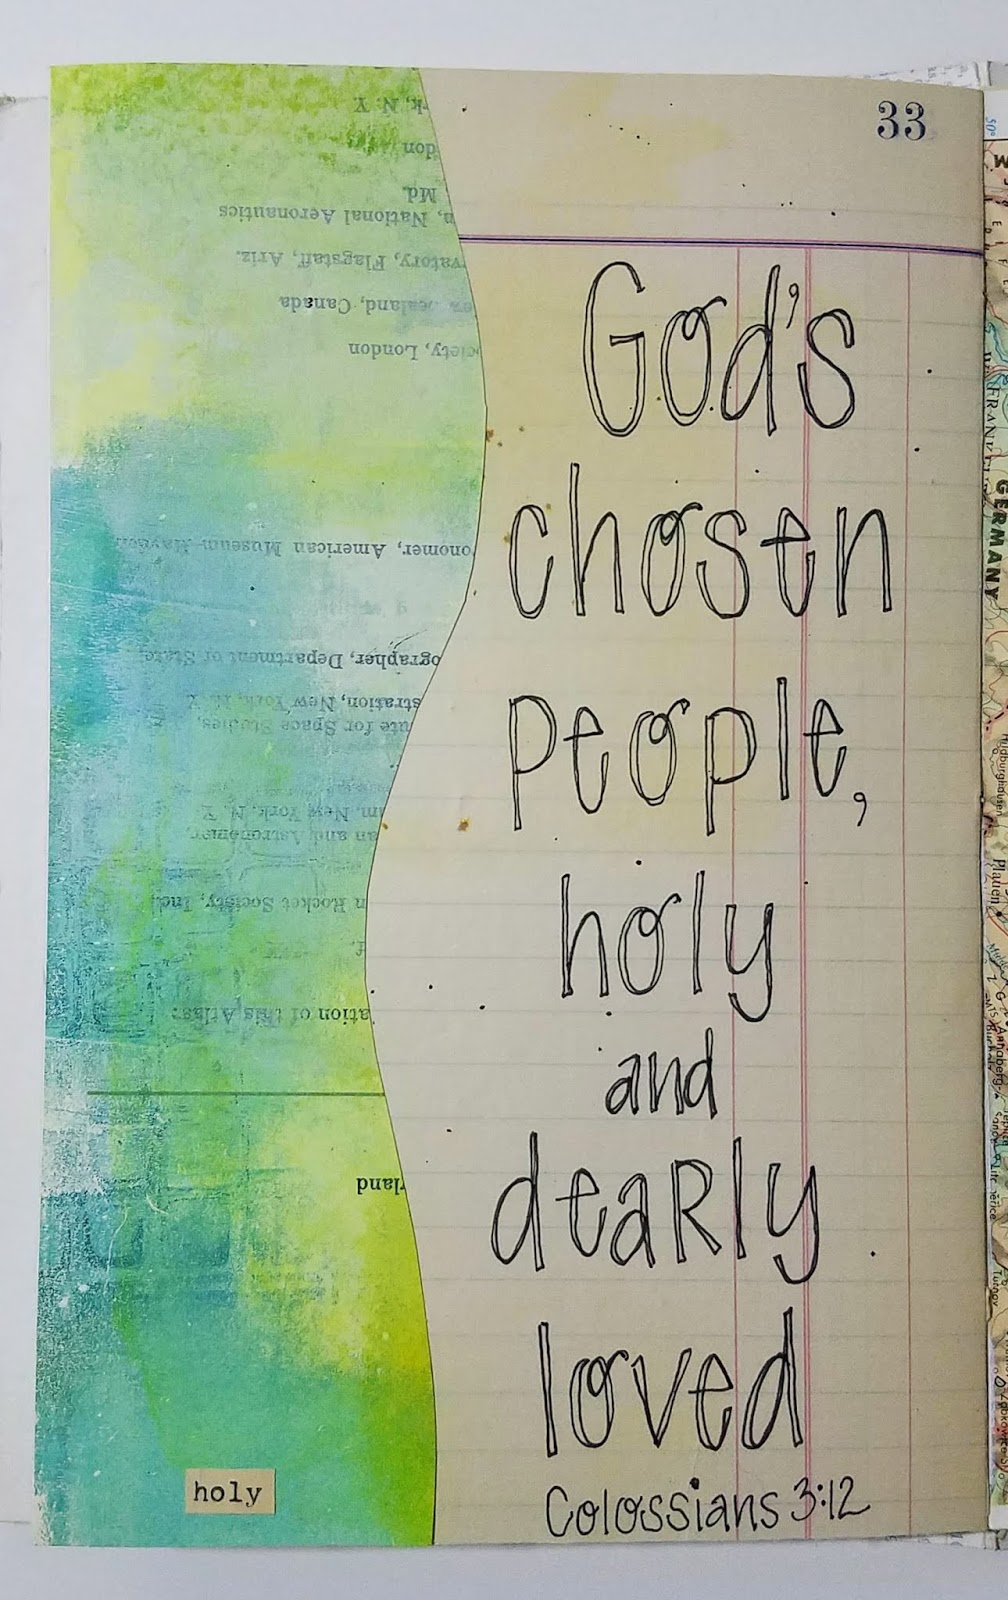 33
God's
chosen
people,
holy
and
dearly
loved
Colossians 3:12
holy
rland
ation of this Atlas:
n Rocket Society, Inc.
an and Astronomer,
m, New York, N. Y.
ute for Space Studies,
stration, New York, N. Y.
ographer, Department of State,
onomer, American Museum-Hayden
ciety, London
ealand, Canada
rvatory, Flagstaff, Ariz.
n, National Aeronautics
Md.
don
rk, N. Y.
50°
FRANK
GERMANY
Hildburghausen
Plauen
Annaberg-